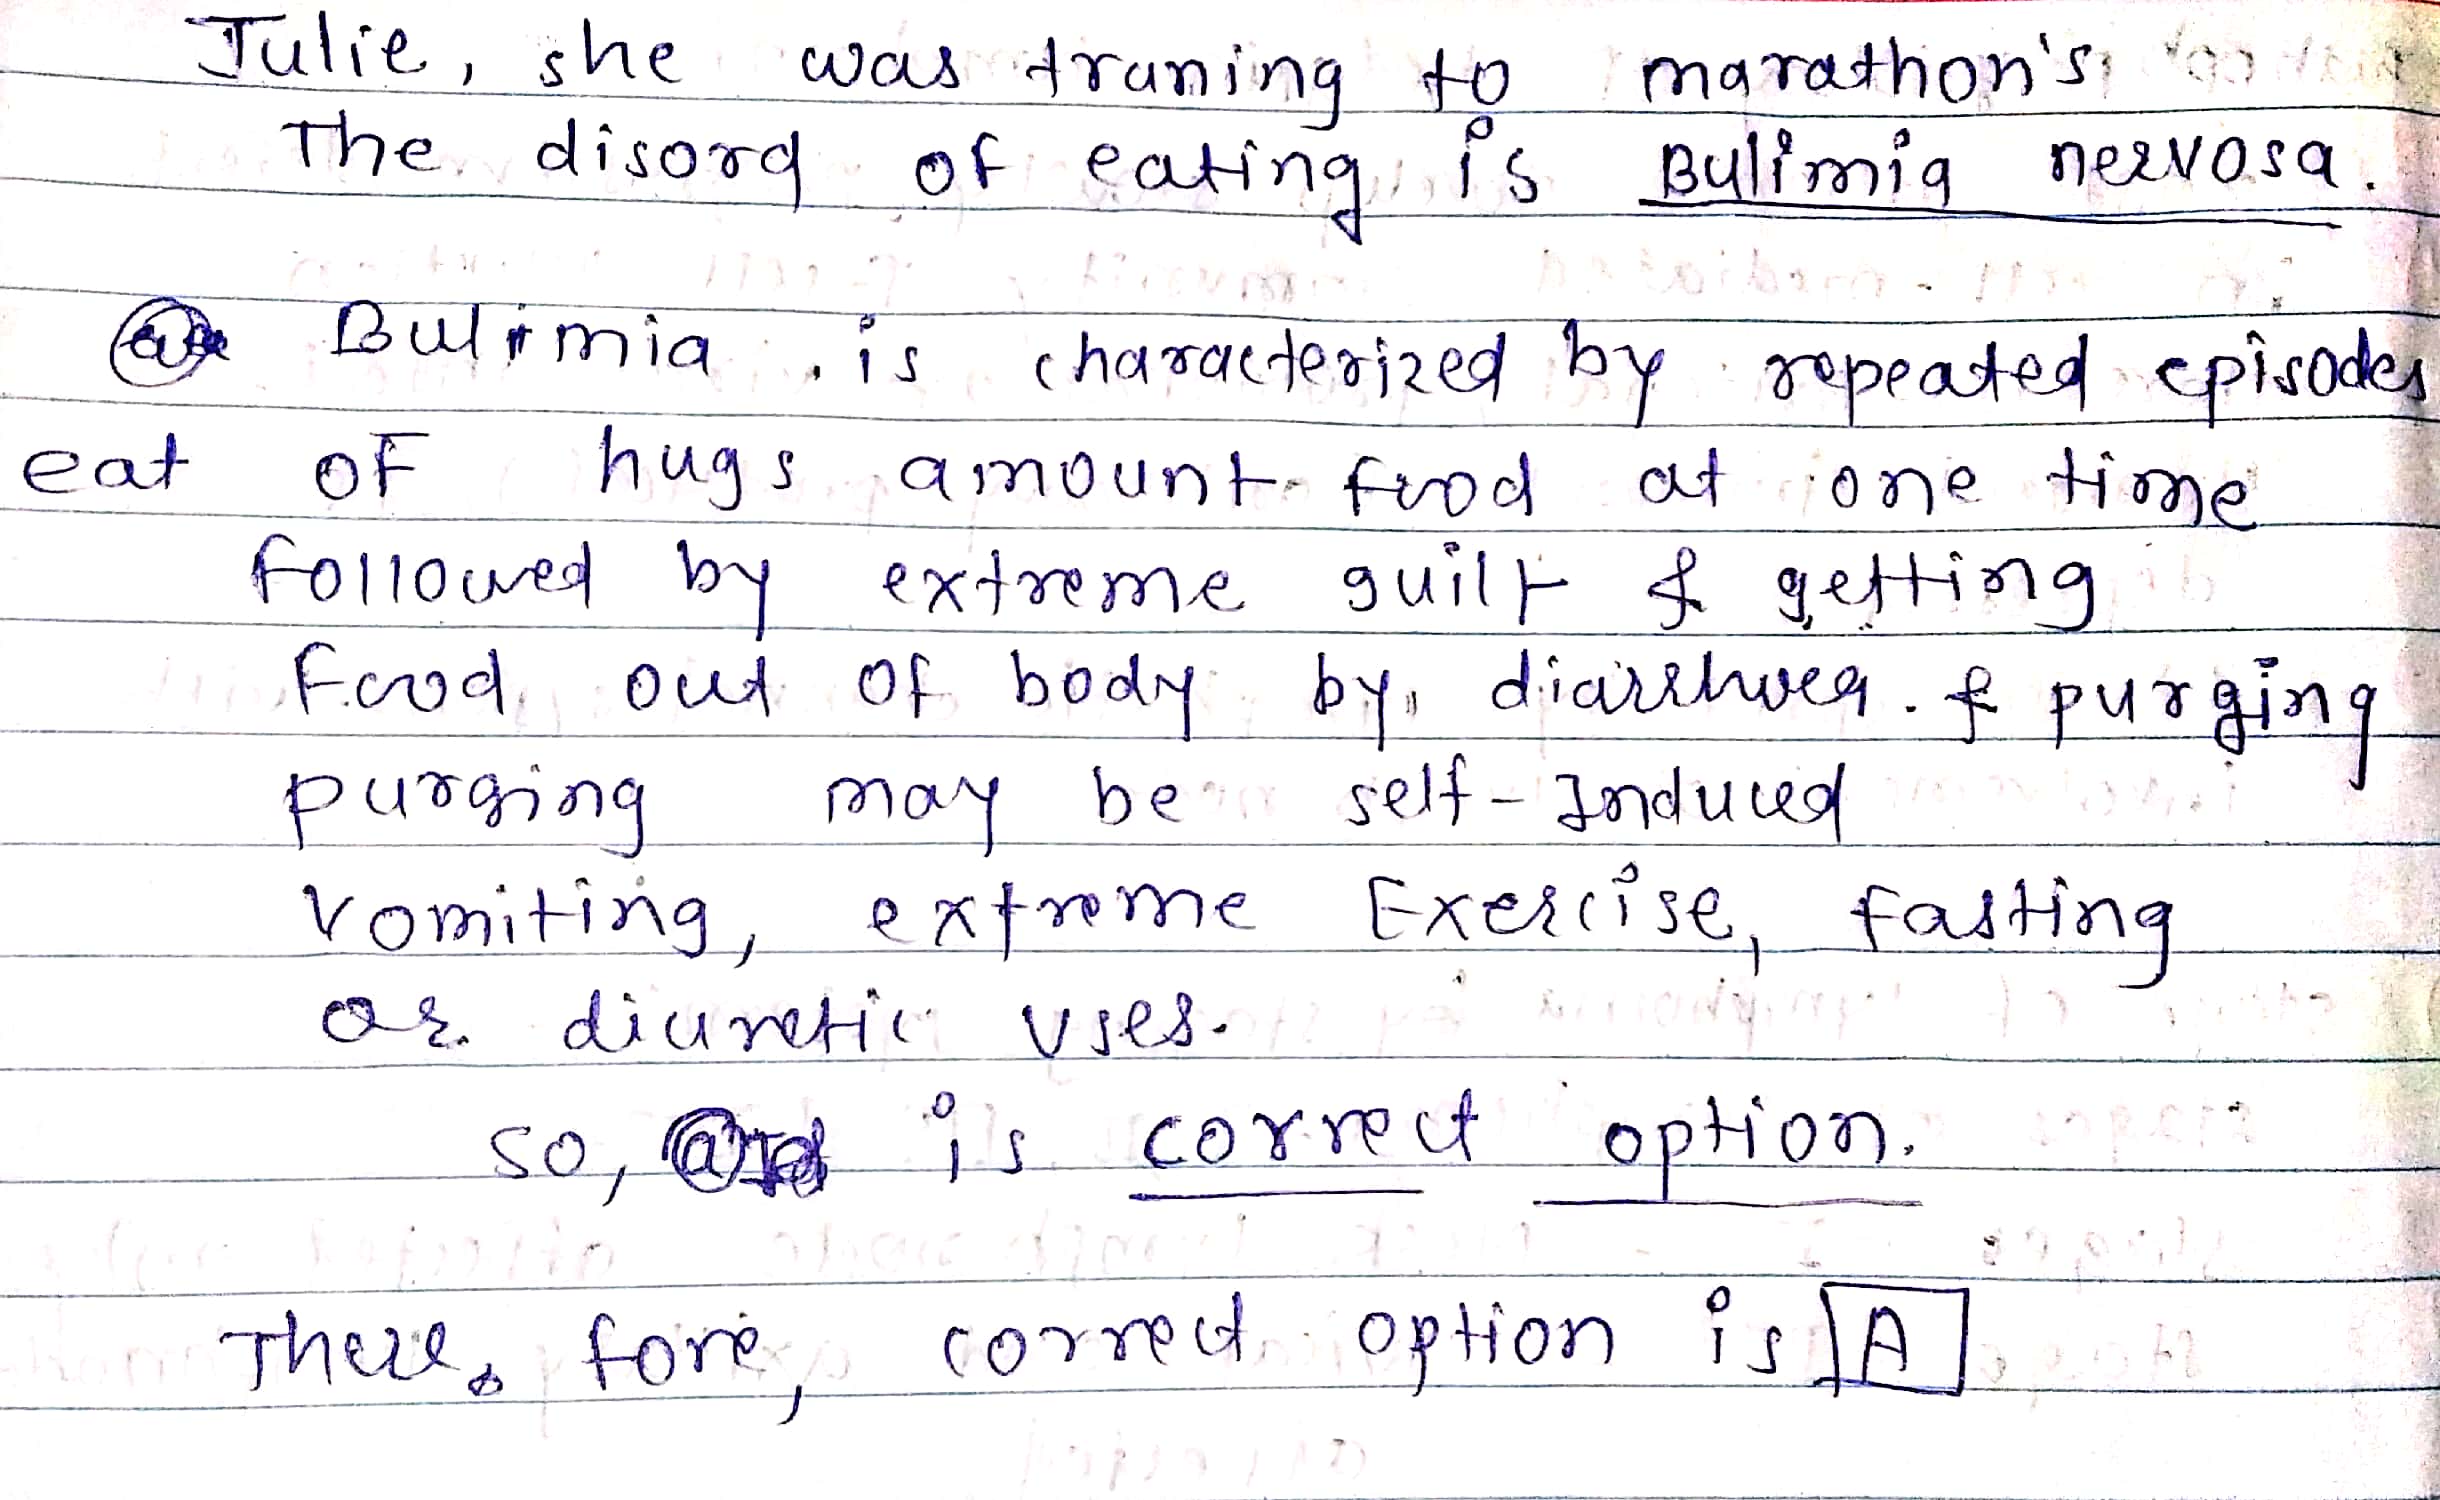 Julie, she was traning to marathon's
The disord of eating is Bulimia nervosa.
Bulimia is characterized by repeated episodes
eat of hugs amount food at one time
followed by extreme guilt & getting
food out of body by diarrhoea. & purging
purging may be self-Induced
vomiting, extreme Exercise, fasting
or diuretic uses.
so, is correct option.
There, fore, correct option is A